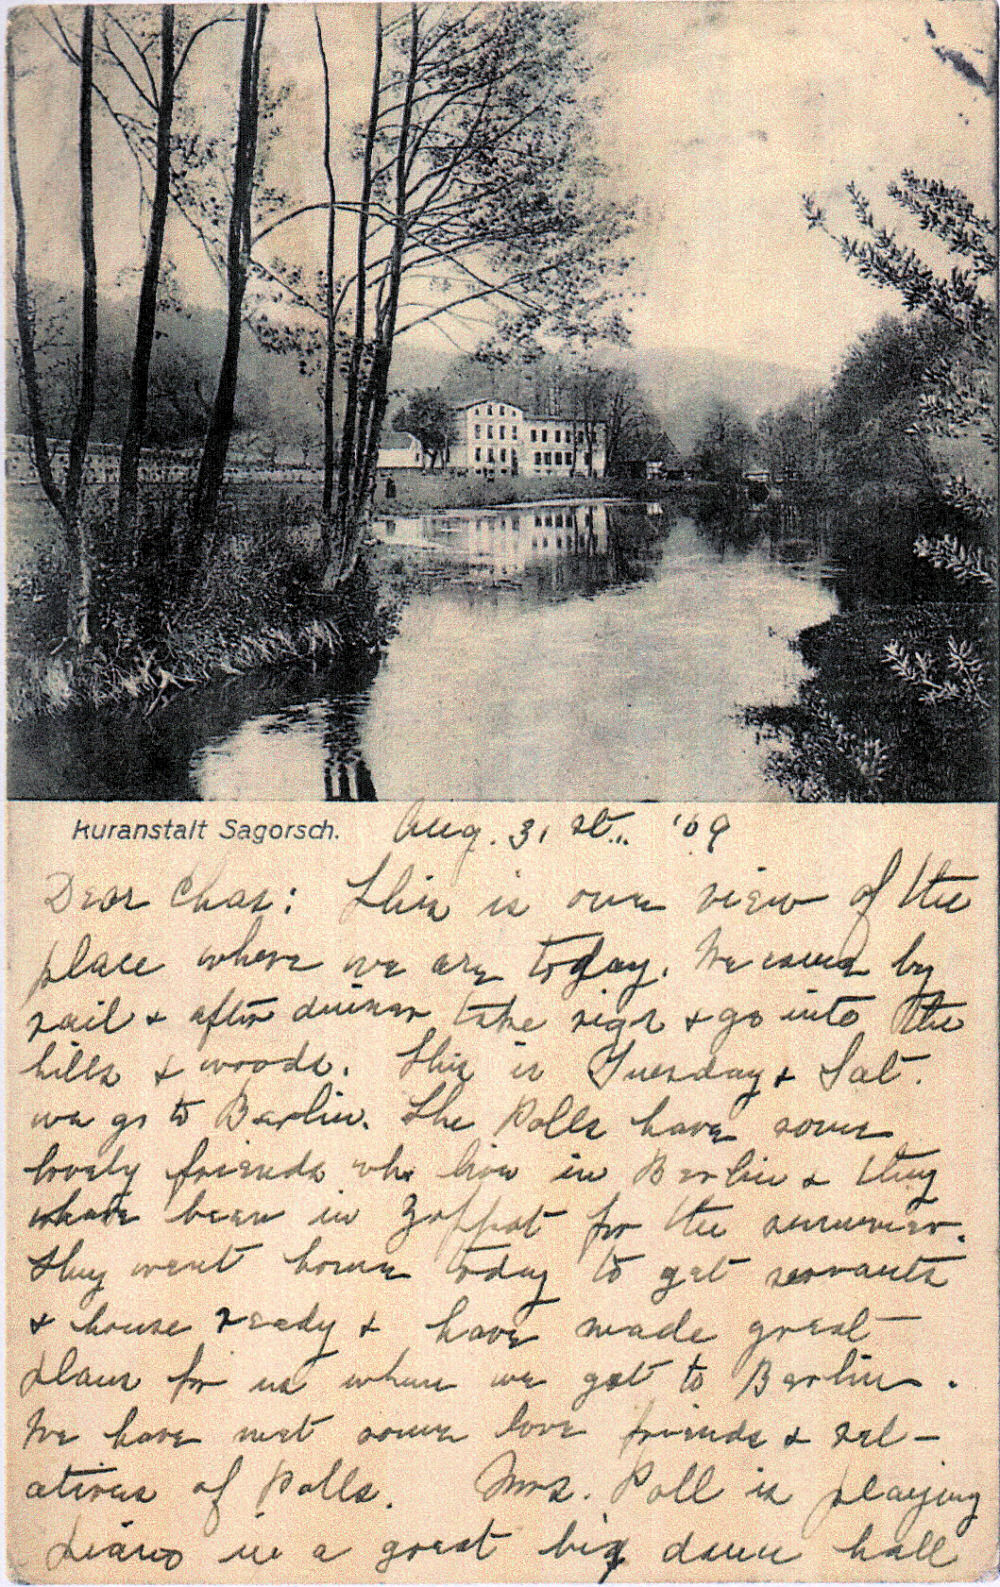 Kuranstalt Sagorsch. Aug. 31 st.. '09
Dear Chas: This is one view of the
place where we are today. We came by
rail & after dinner take rigs & go into the
hills & woods. This is Tuesday & Sat.
we go to Berlin. The Polls have some
lovely friends who live in Berlin & they
have been in Zoppot for the summer.
They went home today to get servants
& house ready & have made great
plans for us when we get to Berlin.
We have met some love friends & rel-
atives of Polls. Mrs. Poll is playing
piano in a great big dance hall